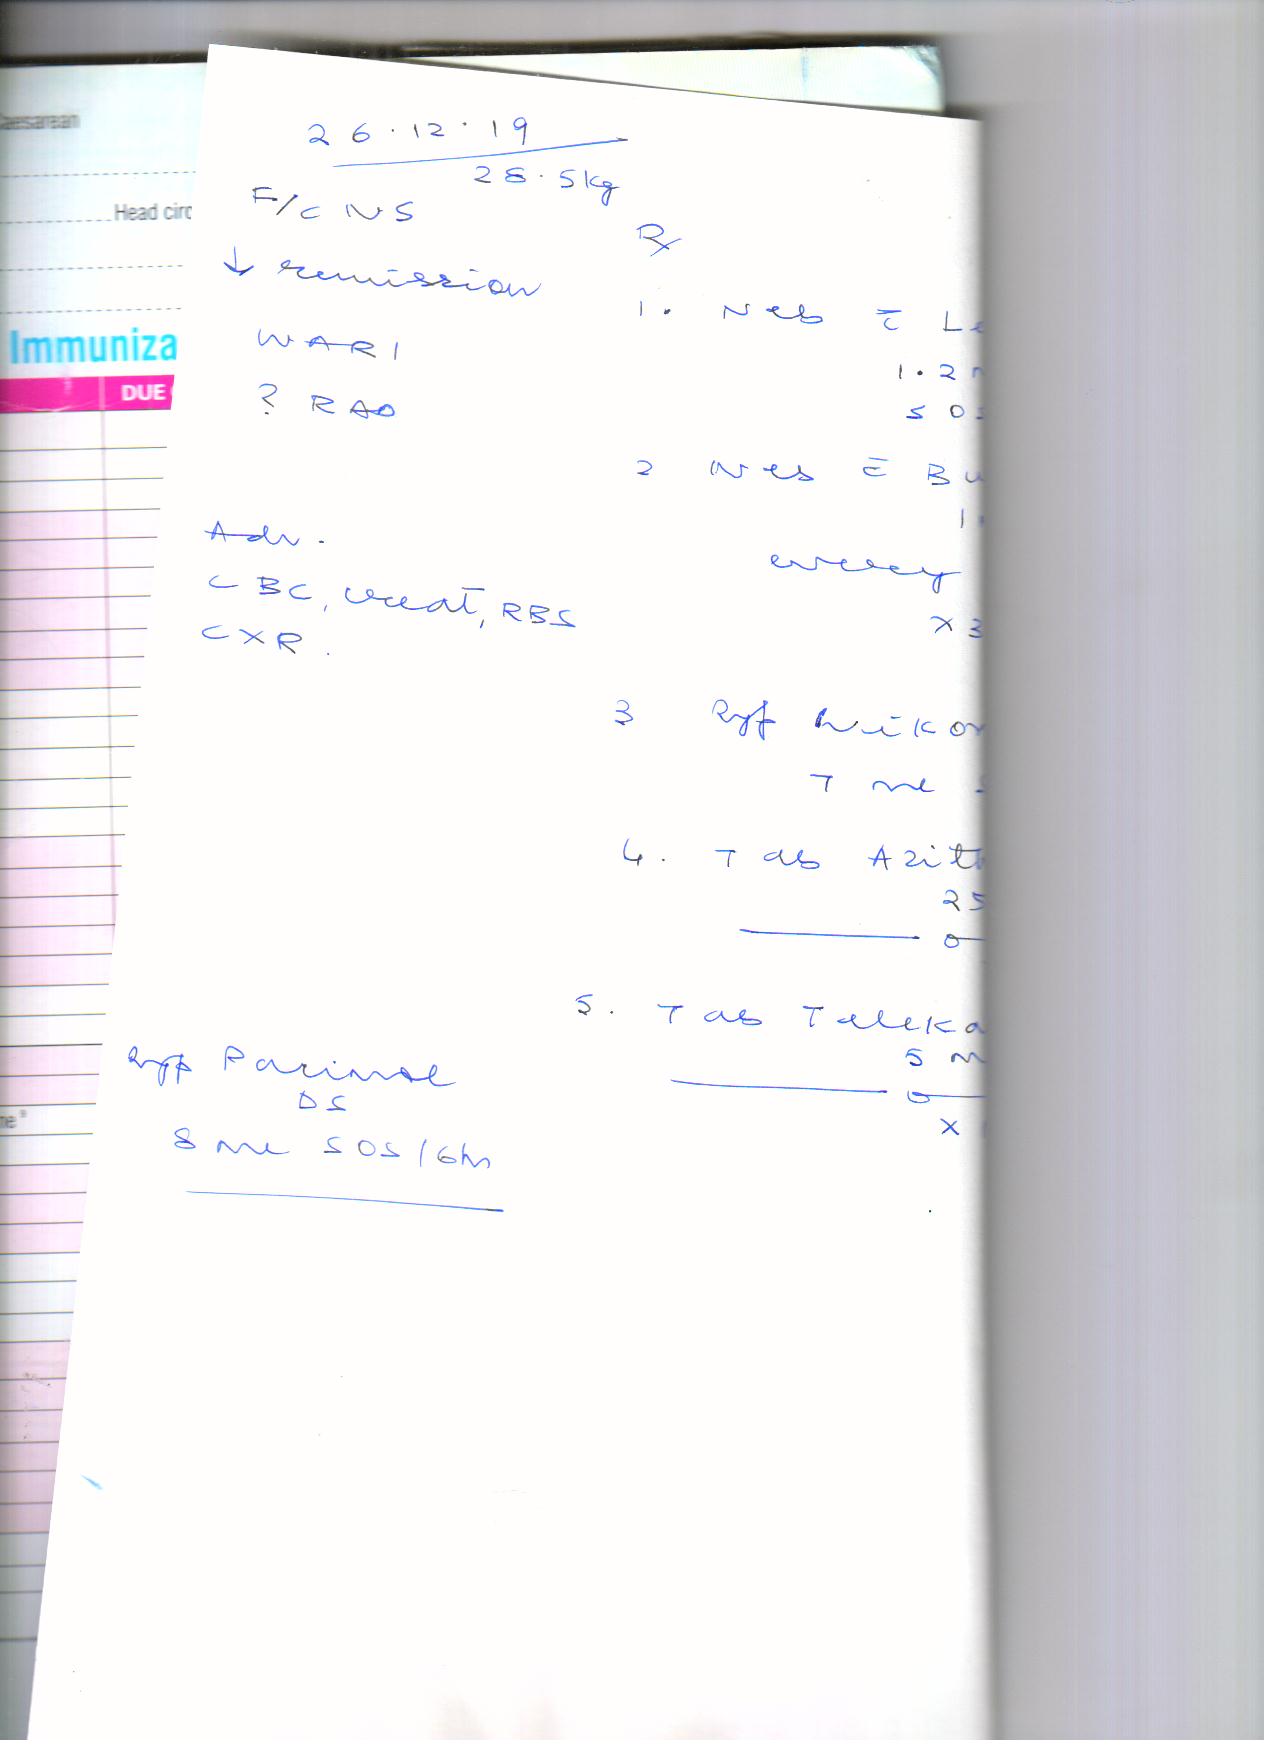 aesarean
Head circ
Immuniza
DUE
26.12.19
28.5kg
F/C NS
↓ remission
WARI
? RAD
Adv.
CBC, creat, RBS
CXR.
Syp Parimol
DS
8 ml SOS/6h
Rx
1. Neb c̄ Le
1.2
SOS
2 Neb c̄ Bu
1
every
x 3
3 Syp
7 ml
4. Tab Azith
25
0
5. Tab Teleka
5 m
0
x